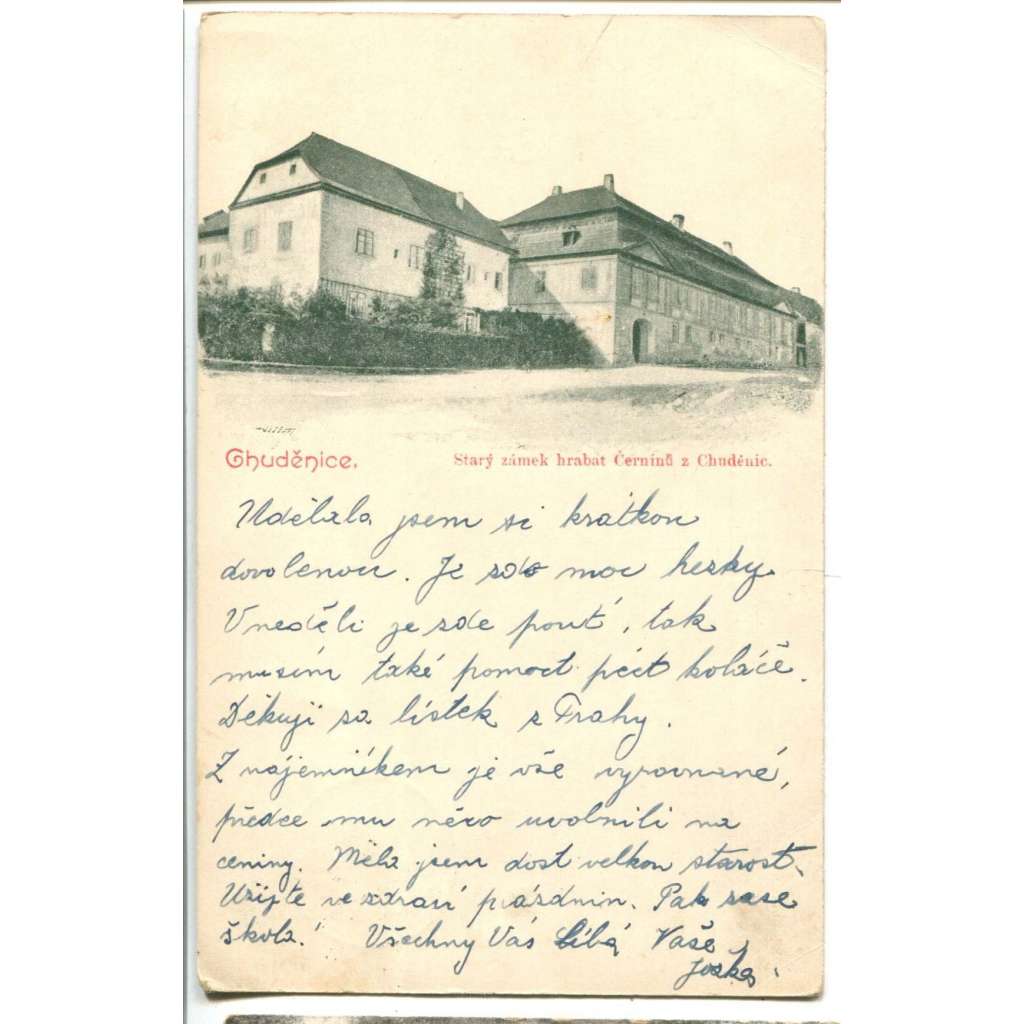 Chuděnice.
Starý zámek hrabat Černínů z Chuděnic.
Udělala jsem si krátkou
dovolenou. Je zde moc hezky
V neděli je zde pouť, tak
musím také pomoct péct koláče.
Děkuji za lístek z Prahy.
Z nájemníkem je vše vyrovnané,
předce mu něco uvolnili na
ceniny. Měla jsem dost velkou starost.
Užijte ve zdraví prázdnin. Pak zase
škola! Všechny Vás líbá Vaše